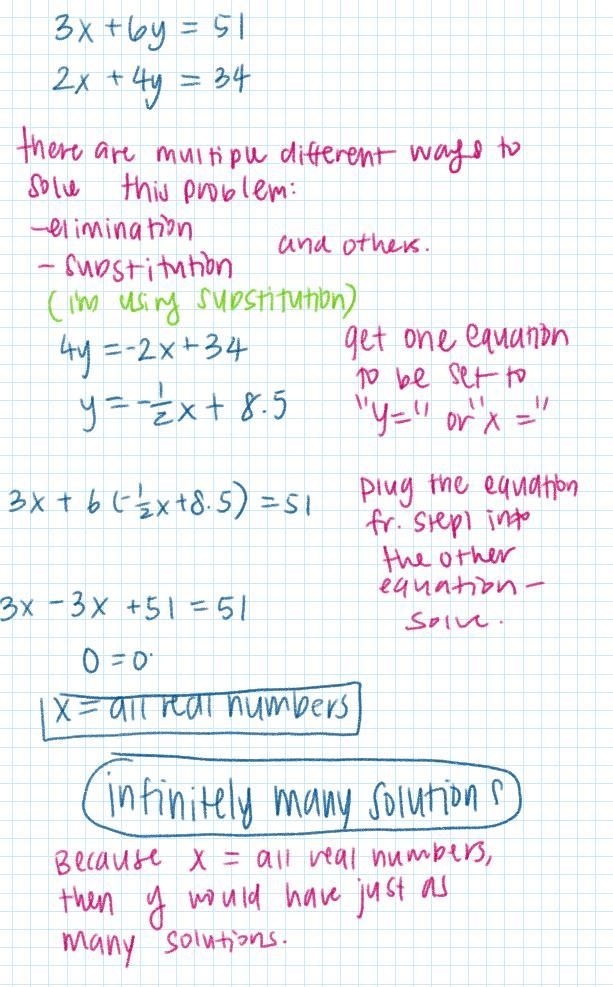 3x + 6y = 51
2x + 4y = 34
there are multiple different ways to
solve this problem:
-elimination
- substitution
and others.
(i'm using substitution)
4y = -2x + 34
y = -1/2x + 8.5
get one equation
to be set to
"y=" or "x ="
3x + 6 (-1/2x+8.5) = 51
plug the equation
fr. step1 into
the other
equation -
solve.
3x - 3x + 51 = 51
0 = 0
x = all real numbers
infinitely many solutions
Because x = all real numbers,
then y would have just as
many solutions.